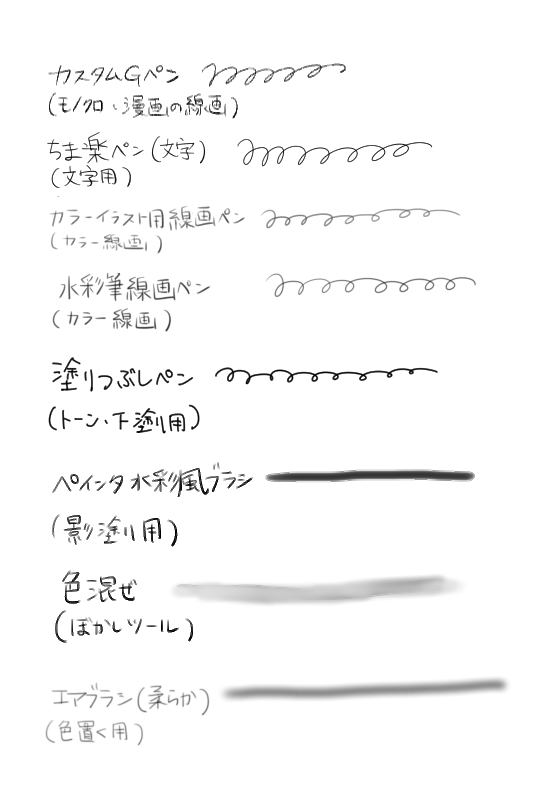 カスタムGペン
(モノクロ・漫画の線画)
ちま楽ペン(文字)
(文字用)
カラーイラスト用線画ペン
(カラー線画)
水彩筆線画ペン
(カラー線画)
塗りつぶしペン
(トーン・下塗り用)
ペインタ水彩風ブラシ
(影塗り用)
色混ぜ
(ぼかしツール)
エアブラシ(柔らか)
(色置く用)